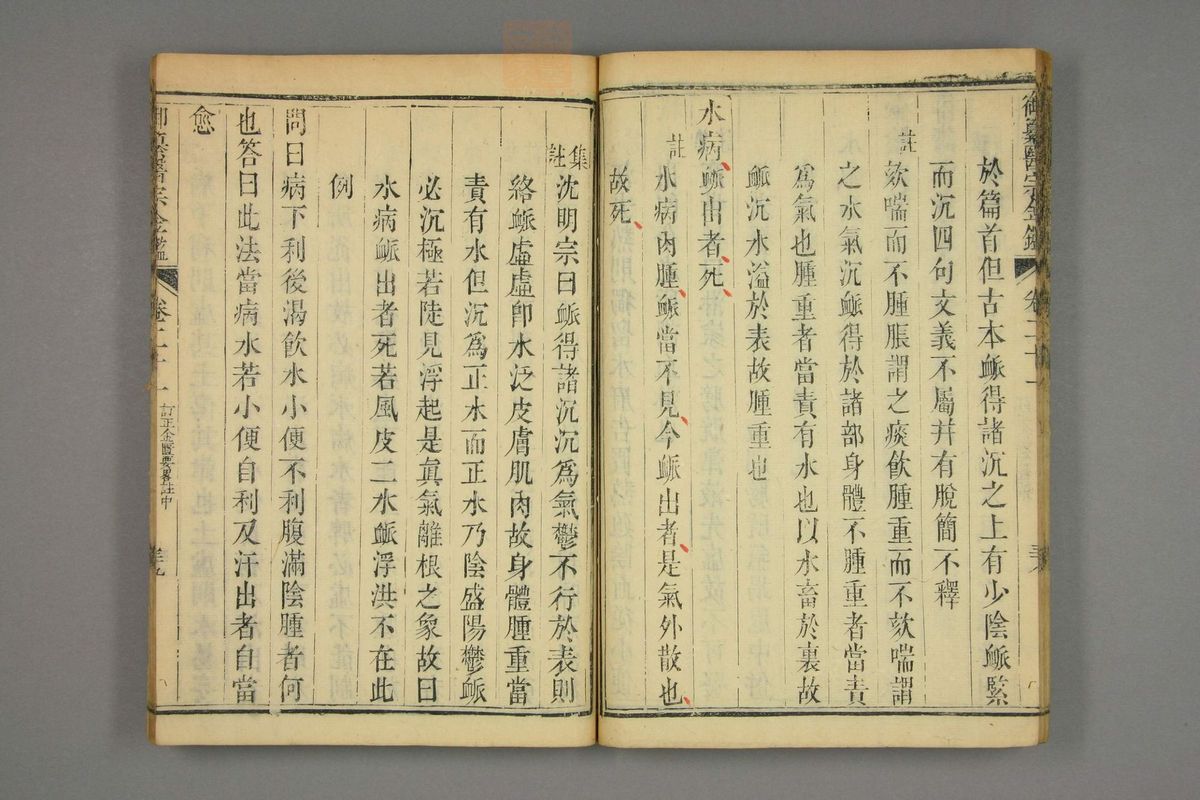 御纂醫宗金鑑 卷二十一
於篇首但古本脈得諸沉之上有少陰脈緊
而沉四句文義不屬幷有脫簡不釋
註 欬喘而不腫脹謂之痰飲腫重而不欬喘謂
之水氣沉脈得於諸部身體不腫重者當責
爲氣也腫重者當責有水也以水畜於裏故
脈沉水溢於表故腫重也
水病脈出者死
註 水病肉腫脈當不見今脈出者是氣外散也
故死
集註 沈明宗曰脈得諸沉沉爲氣鬱不行於表則
絡脈虛虛卽水泛皮膚肌肉故身體腫重當
責有水但沉爲正水而正水乃陰盛陽鬱脈
必沉極若陡見浮起是眞氣離根之象故曰
水病脈出者死若風皮二水脈浮洪不在此
例
問曰病下利後渴飲水小便不利腹滿陰腫者何
也答曰此法當病水若小便自利及汗出者自當
愈
御纂醫宗金鑑 卷二十一 訂正金匱要畧註中